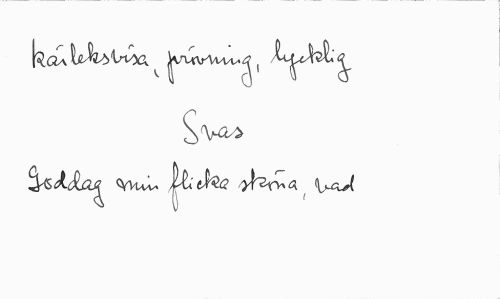 kärleksvisa, prövning, lycklig
Svas
Goddag min flicka sköna, vad